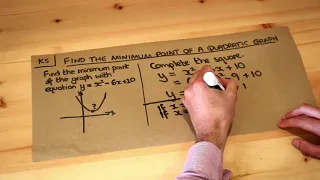 KS FIND THE MINIMUM POINT OF A QUADRATIC GRAPH
Find the minimum point
of the graph with
equation y = x² - 6x + 10
?
Complete the square.
y = x² x + 10
y = 9 + 10
y = 1
If x
If x